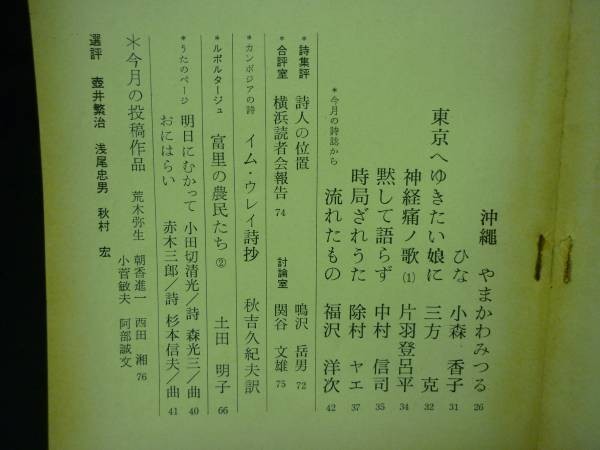 沖縄 やまかわみつる 26
ひな 小森 香子 31
東京へゆきたい娘に 三方 克 32
神経痛ノ歌(1) 片羽登呂平 34
黙して語らず 中村 信司 35
時局ざれうた 除村 ヤエ 37
*今月の詩誌から 流れたもの 福沢 洋次 42
*詩集評 詩人の位置 鳴沢 岳男 72
*合評室 横浜読者会報告 74 討論室 関谷 文雄 75
*カンボジアの詩 イム・ウレイ詩抄 秋吉久紀夫訳
*ルポルタージュ 富里の農民たち② 土田 明子 66
*うたのページ 明日にむかって 小田切清光/詩 森光三/曲 40
おにはらい 赤木三郎/詩 杉本信夫/曲 41
*今月の投稿作品 荒木弥生 朝香進一 西田 湘
小菅敏夫 阿部誠文 76
選評 壺井繁治 浅尾忠男 秋村 宏